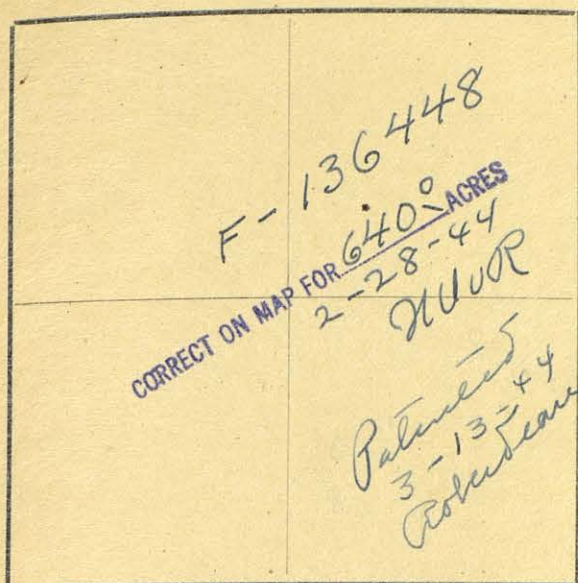 F-136448
CORRECT ON MAP FOR 640 ACRES
2-28-44
Patented
3-13-44